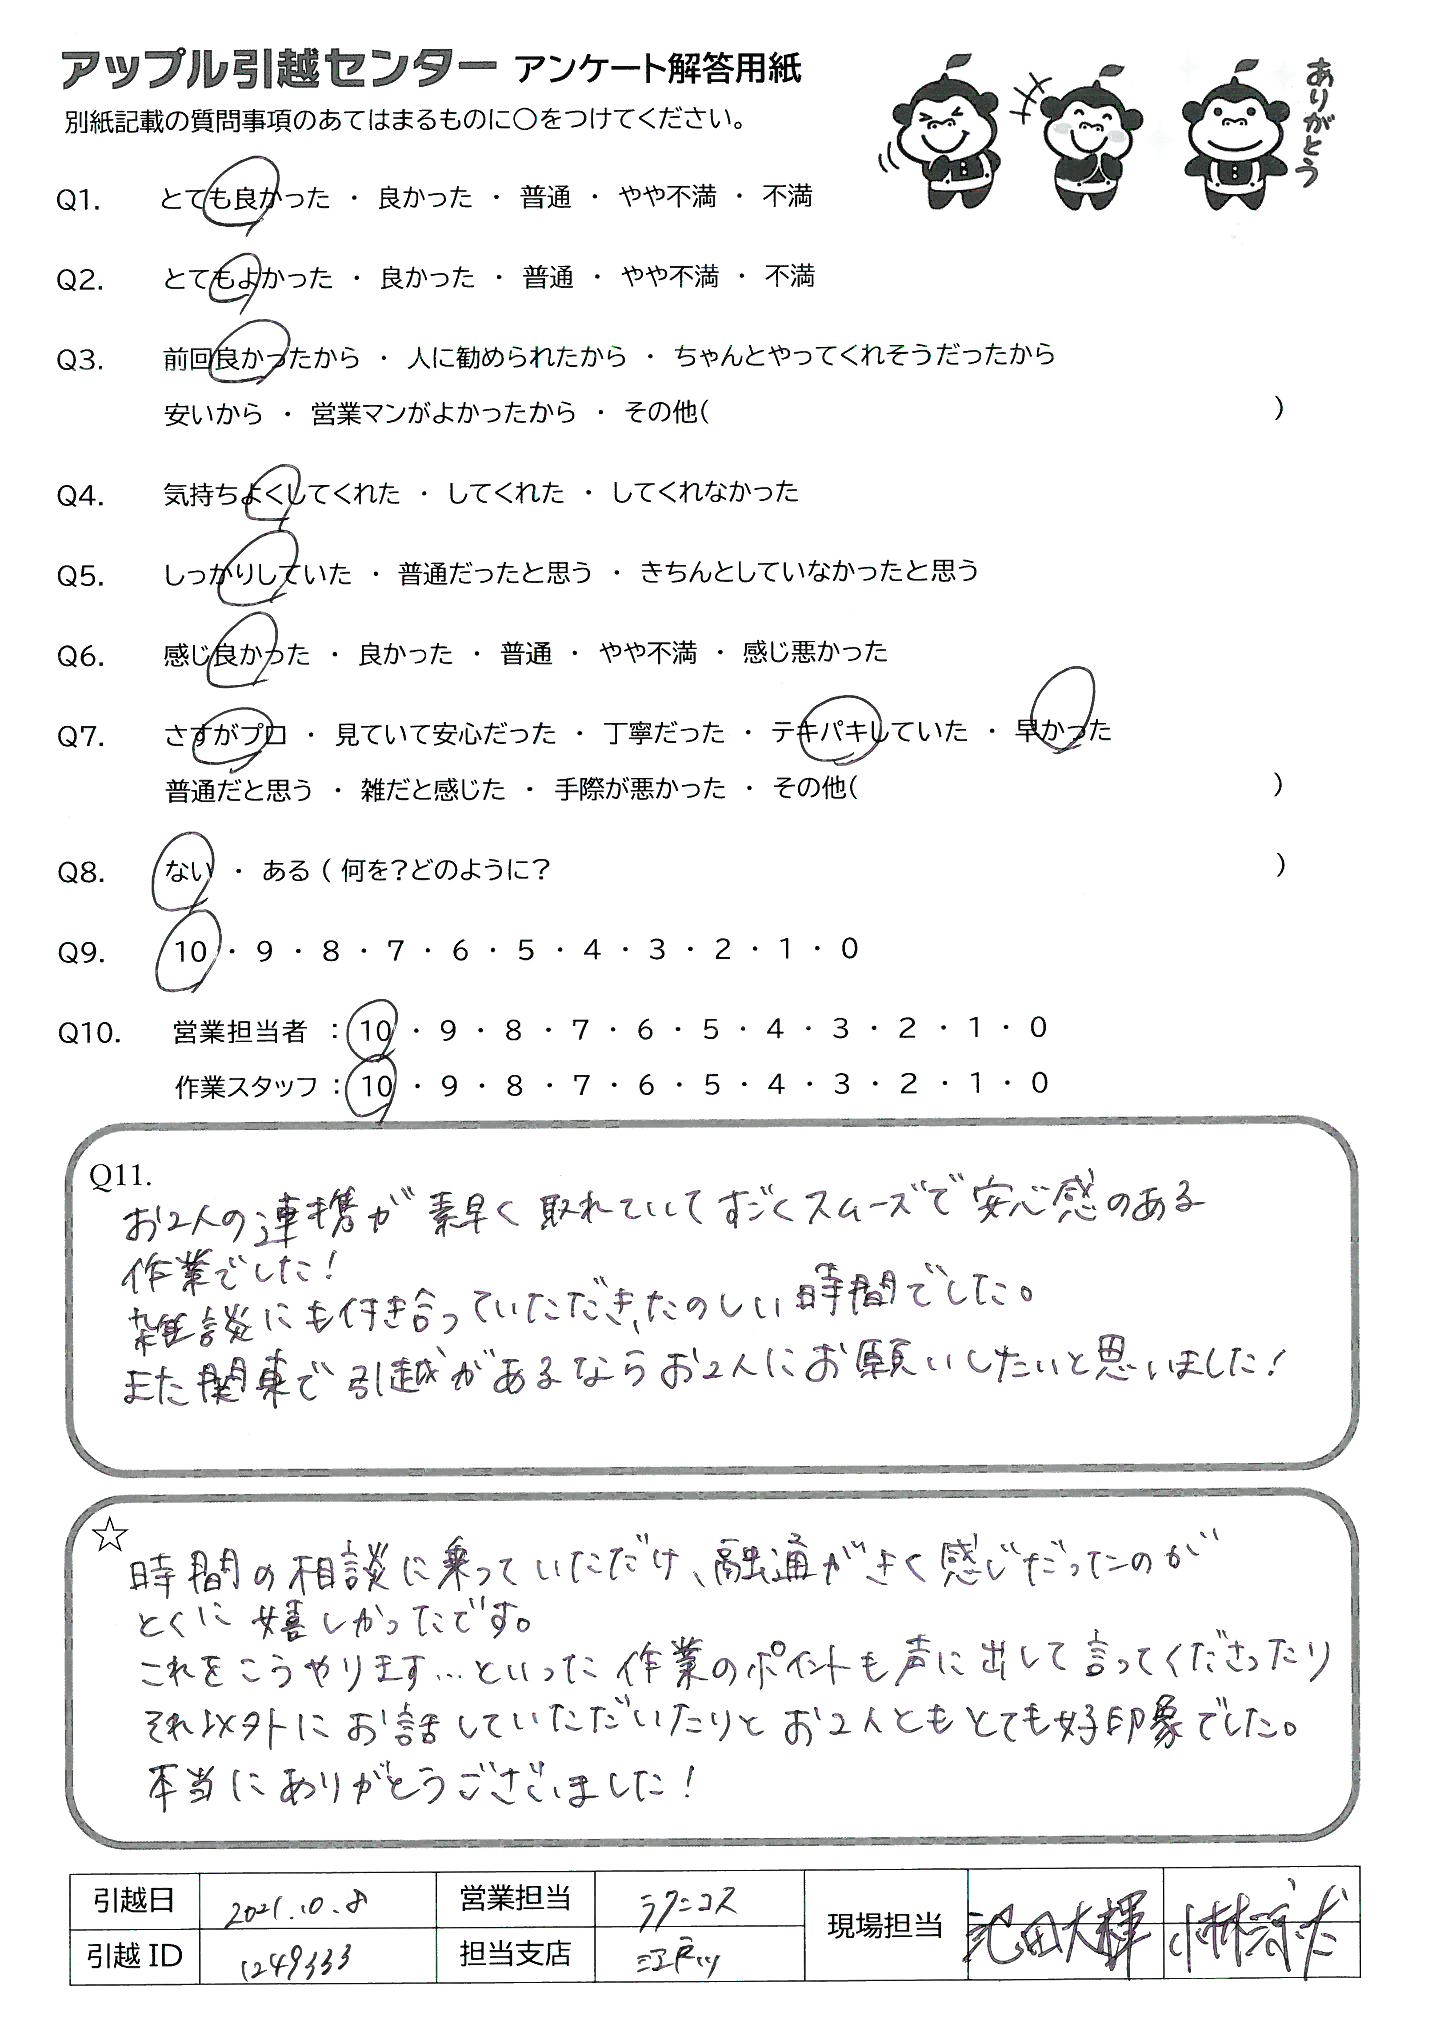 アップル引越センター アンケート解答用紙
ありがとう
別紙記載の質問事項のあてはまるものに〇をつけてください。
Q1. とても良かった ・ 良かった ・ 普通 ・ やや不満 ・ 不満
Q2. とてもよかった ・ 良かった ・ 普通 ・ やや不満 ・ 不満
Q3. 前回良かったから ・ 人に勧められたから ・ ちゃんとやってくれそうだったから
安いから ・ 営業マンがよかったから ・ その他( )
Q4. 気持ちよくしてくれた ・ してくれた ・ してくれなかった
Q5. しっかりしていた ・ 普通だったと思う ・ きちんとしていなかったと思う
Q6. 感じ良かった ・ 良かった ・ 普通 ・ やや不満 ・ 感じ悪かった
Q7. さすがプロ ・ 見ていて安心だった ・ 丁寧だった ・ テキパキしていた ・ 早かった
普通だと思う ・ 雑だと感じた ・ 手際が悪かった ・ その他( )
Q8. ない ・ ある ( 何を?どのように? )
Q9. 10 ・ 9 ・ 8 ・ 7 ・ 6 ・ 5 ・ 4 ・ 3 ・ 2 ・ 1 ・ 0
Q10. 営業担当者 : 10 ・ 9 ・ 8 ・ 7 ・ 6 ・ 5 ・ 4 ・ 3 ・ 2 ・ 1 ・ 0
作業スタッフ : 10 ・ 9 ・ 8 ・ 7 ・ 6 ・ 5 ・ 4 ・ 3 ・ 2 ・ 1 ・ 0
Q11.
お2人の連携が素早く取れていてすごくスムーズで安心感のある
作業でした!
雑談にも付き合っていただき、たのしい時間でした。
また関東で引越があるならお2人にお願いしたいと思いました!
☆
時間の相談に乗っていただけ、融通がきく感じだったのが
とくに嬉しかったです。
これをこうやります…といった作業のポイントも声に出して言ってくださったり
それ以外にお話していただいたりとお2人ともとても好印象でした。
本当にありがとうございました!
引越日 2021.10.8 営業担当 ラクニコス 現場担当 池田大輝
引越ID 1249333 担当支店 江戸川